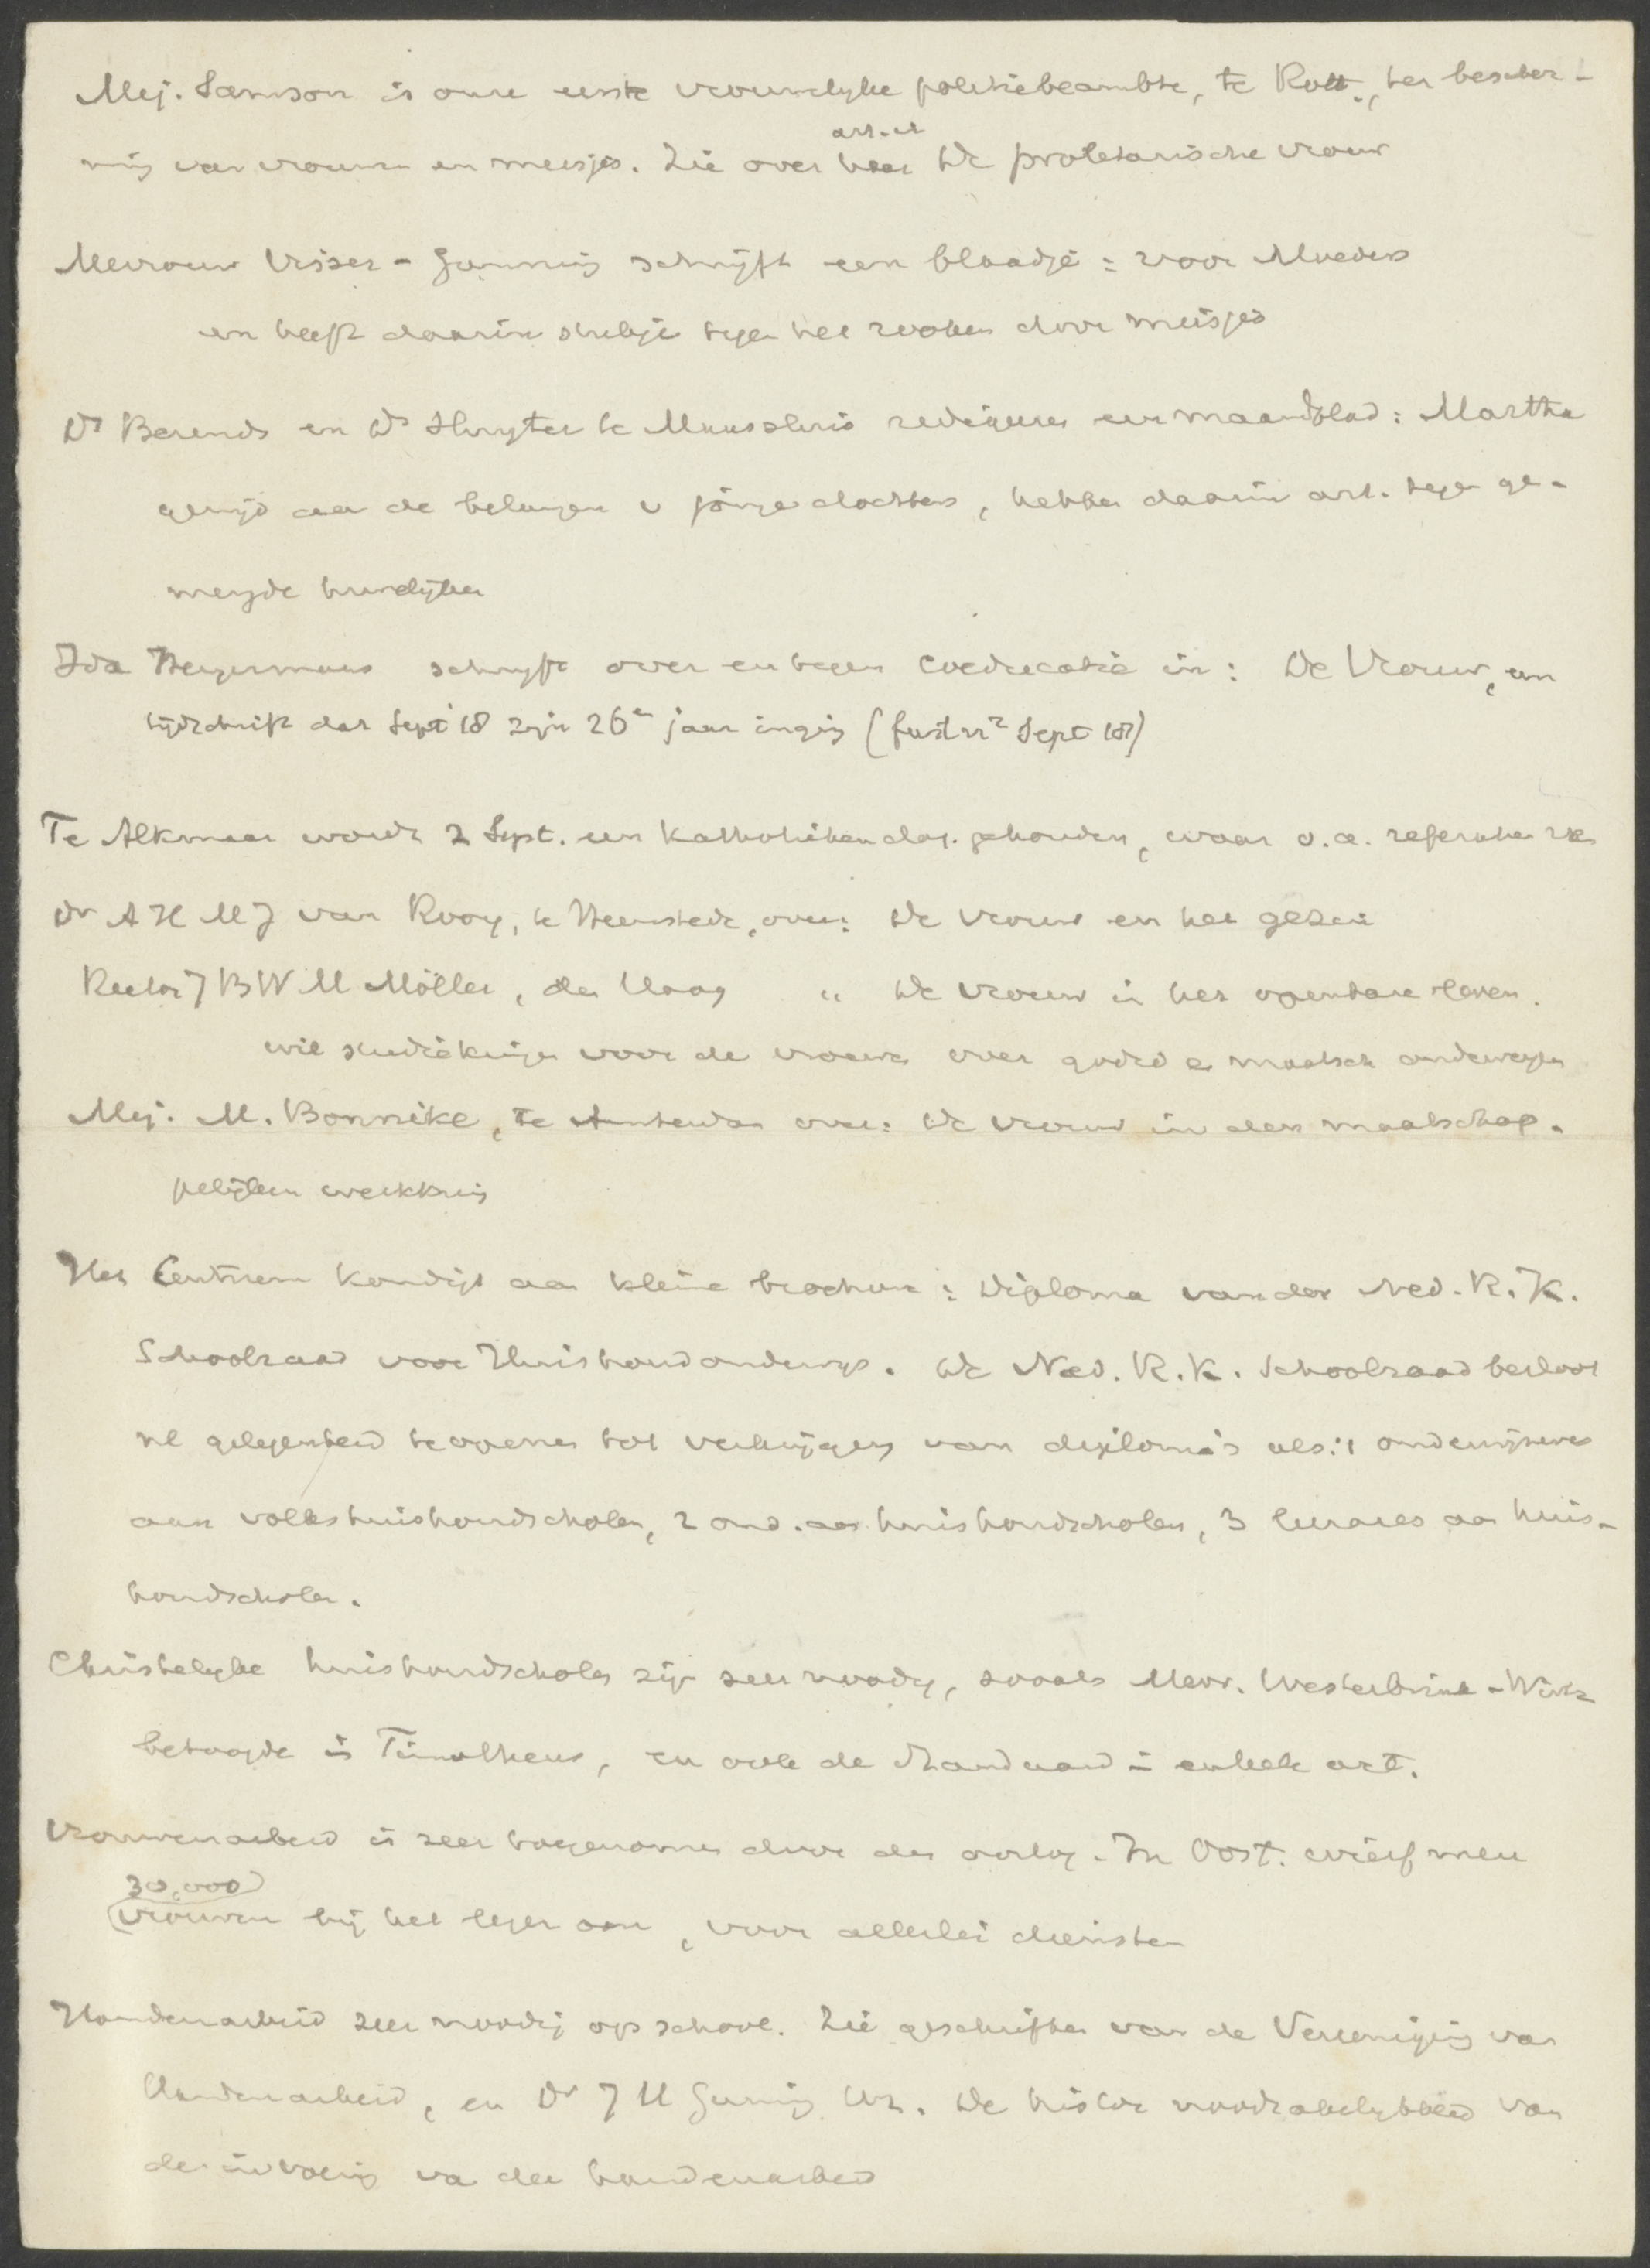 Mej. Samson is onze eerste vrouwelyke politiebeambte, te Rott., ter bescher-
ming van vrouwen en meisjes. Zie over haar art. in De proletarische vrouw
Mevrouw Visser-Gunning schrijft een blaadje: voor Moeders
en heeft daarin stukje tegen het rooken door meisjes
Ds Berends en Ds Sluyter te Maassluis redigeeren een maandblad: Martha
gewijd aan de belangen v jonge dochters, hebben daarin art. tegen ge-
mengde huwelijken
Ida Heyermans schryft over en tegen Coeducatie in: De Vrouw, een
tijdschrift dat Sept '18 zijn 26e jaar inging (Sept 18)
Te Alkmaar wordt 2 Sept. een Katholiekendag gehouden, waar o.a. refereeren zal
Dr A H M J van Rooy, te Heemstede, over: De vrouw en het gezin
Rector J B W M Möller, den Haag " De vrouw in het openbare leven.
wil studiekringen voor de vrouwen over godsd en maatsch onderwerpen
Mej. M. Bonnike, te Amsterdam over: De vrouw in den maatschap-
pelijken werkkring
Het Centrum kondigt aan kleine brochure: Diploma van den Ned. R.K.
Schoolraad voor Huishoudonderwijs. De Ned. R.K. Schoolraad besloot
nl gelegenheid te openen tot verkrijging van diploma's als: 1 onderwijzeres
aan volkshuishoudscholen, 2 ond. aan huishoudscholen, 3 leerares aan huis-
houdscholen.
Christelyke huishoudscholen zijn zeer noodig, zooals Mevr. Westerbrink-Wirtz
betoogde in Timotheus, en ook de Standaard in enkele art.
Vrouwenarbeid is zeer toegenomen door den oorlog. In Oost. wierf men
30,000
vrouwen bij het leger aan, voor allerlei diensten
Handenarbeid zeer noodig op school. Zie geschriften van de Vereeniging van
Handenarbeid, en Dr J H Gunning Wz. De noodzakelykheid van
de invoering van den handenarbeid